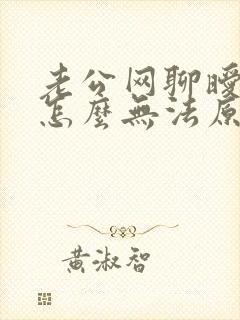 老公网聊曖
怎麼無法原
黃淑智